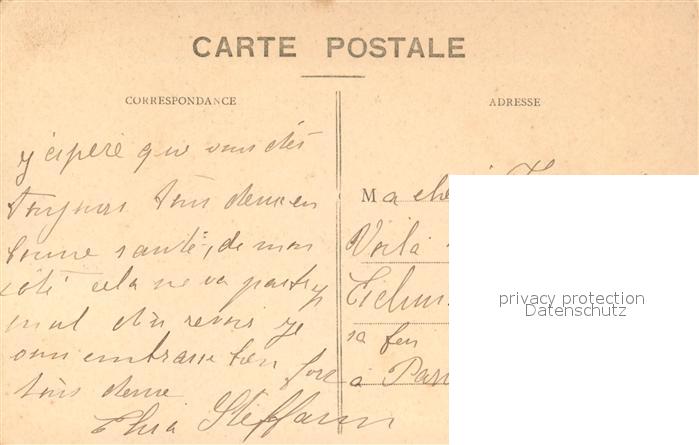 CARTE POSTALE
CORRESPONDANCE
ADRESSE
j'éspère que vous êtes
toujours tous deux en
bonne santé, de mon
côté cela ne va pas trop
mal au revoir je
vous embrasse bien fort
tous deux
Steffann
Ma
Voilà
sa
à
privacy protection
Datenschutz